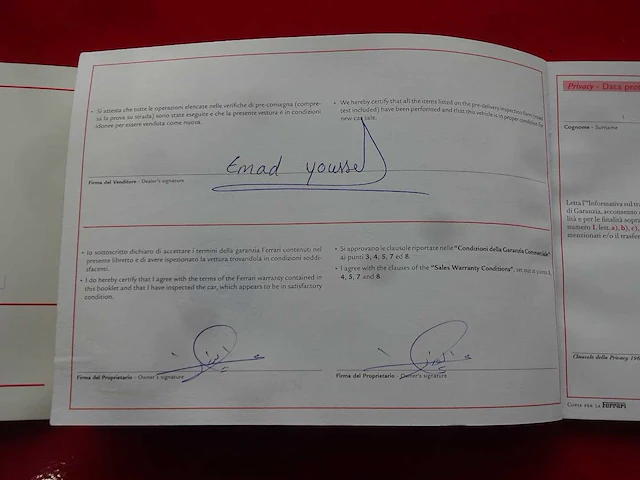 • Si attesta che tutte le operazioni elencate nelle verifiche di pre-consegna (compre-
sa la prova su strada) sono state eseguite e che la presente vettura è in condizioni
idonee per essere venduta come nuova.
• We hereby certify that all the items listed on the pre-delivery inspection form (road
test included) have been performed and that this vehicle is in proper condition for
new car sale.
Emad youssef
Firma del Venditore - Dealer's signature
• Io sottoscritto dichiaro di accettare i termini della garanzia Ferrari contenuti nel
presente libretto e di avere ispezionato la vettura trovandola in condizioni soddi-
sfacenti.
• I do hereby certify that I agree with the terms of the Ferrari warranty contained in
this booklet and that I have inspected the car, which appears to be in satisfactory
condition.
• Si approvano le clausole riportate nelle "Condizioni della Garanzia Commerciale"
ai punti 3, 4, 5, 7 ed 8.
• I agree with the clauses of the "Sales Warranty Conditions", set out at points 3,
4, 5, 7 and 8.
Firma del Proprietario - Owner's signature
Firma del Proprietario - Owner's signature
Privacy - Data prot
Cognome - Surname
Letta l'"Informativa sul tra
di Garanzia, acconsento
lità e per le finalità sopra
numero 1, lett. a), b), c),
menzionati e/o il trasfer
Clausola della Privacy 196
Copia per la Ferrari